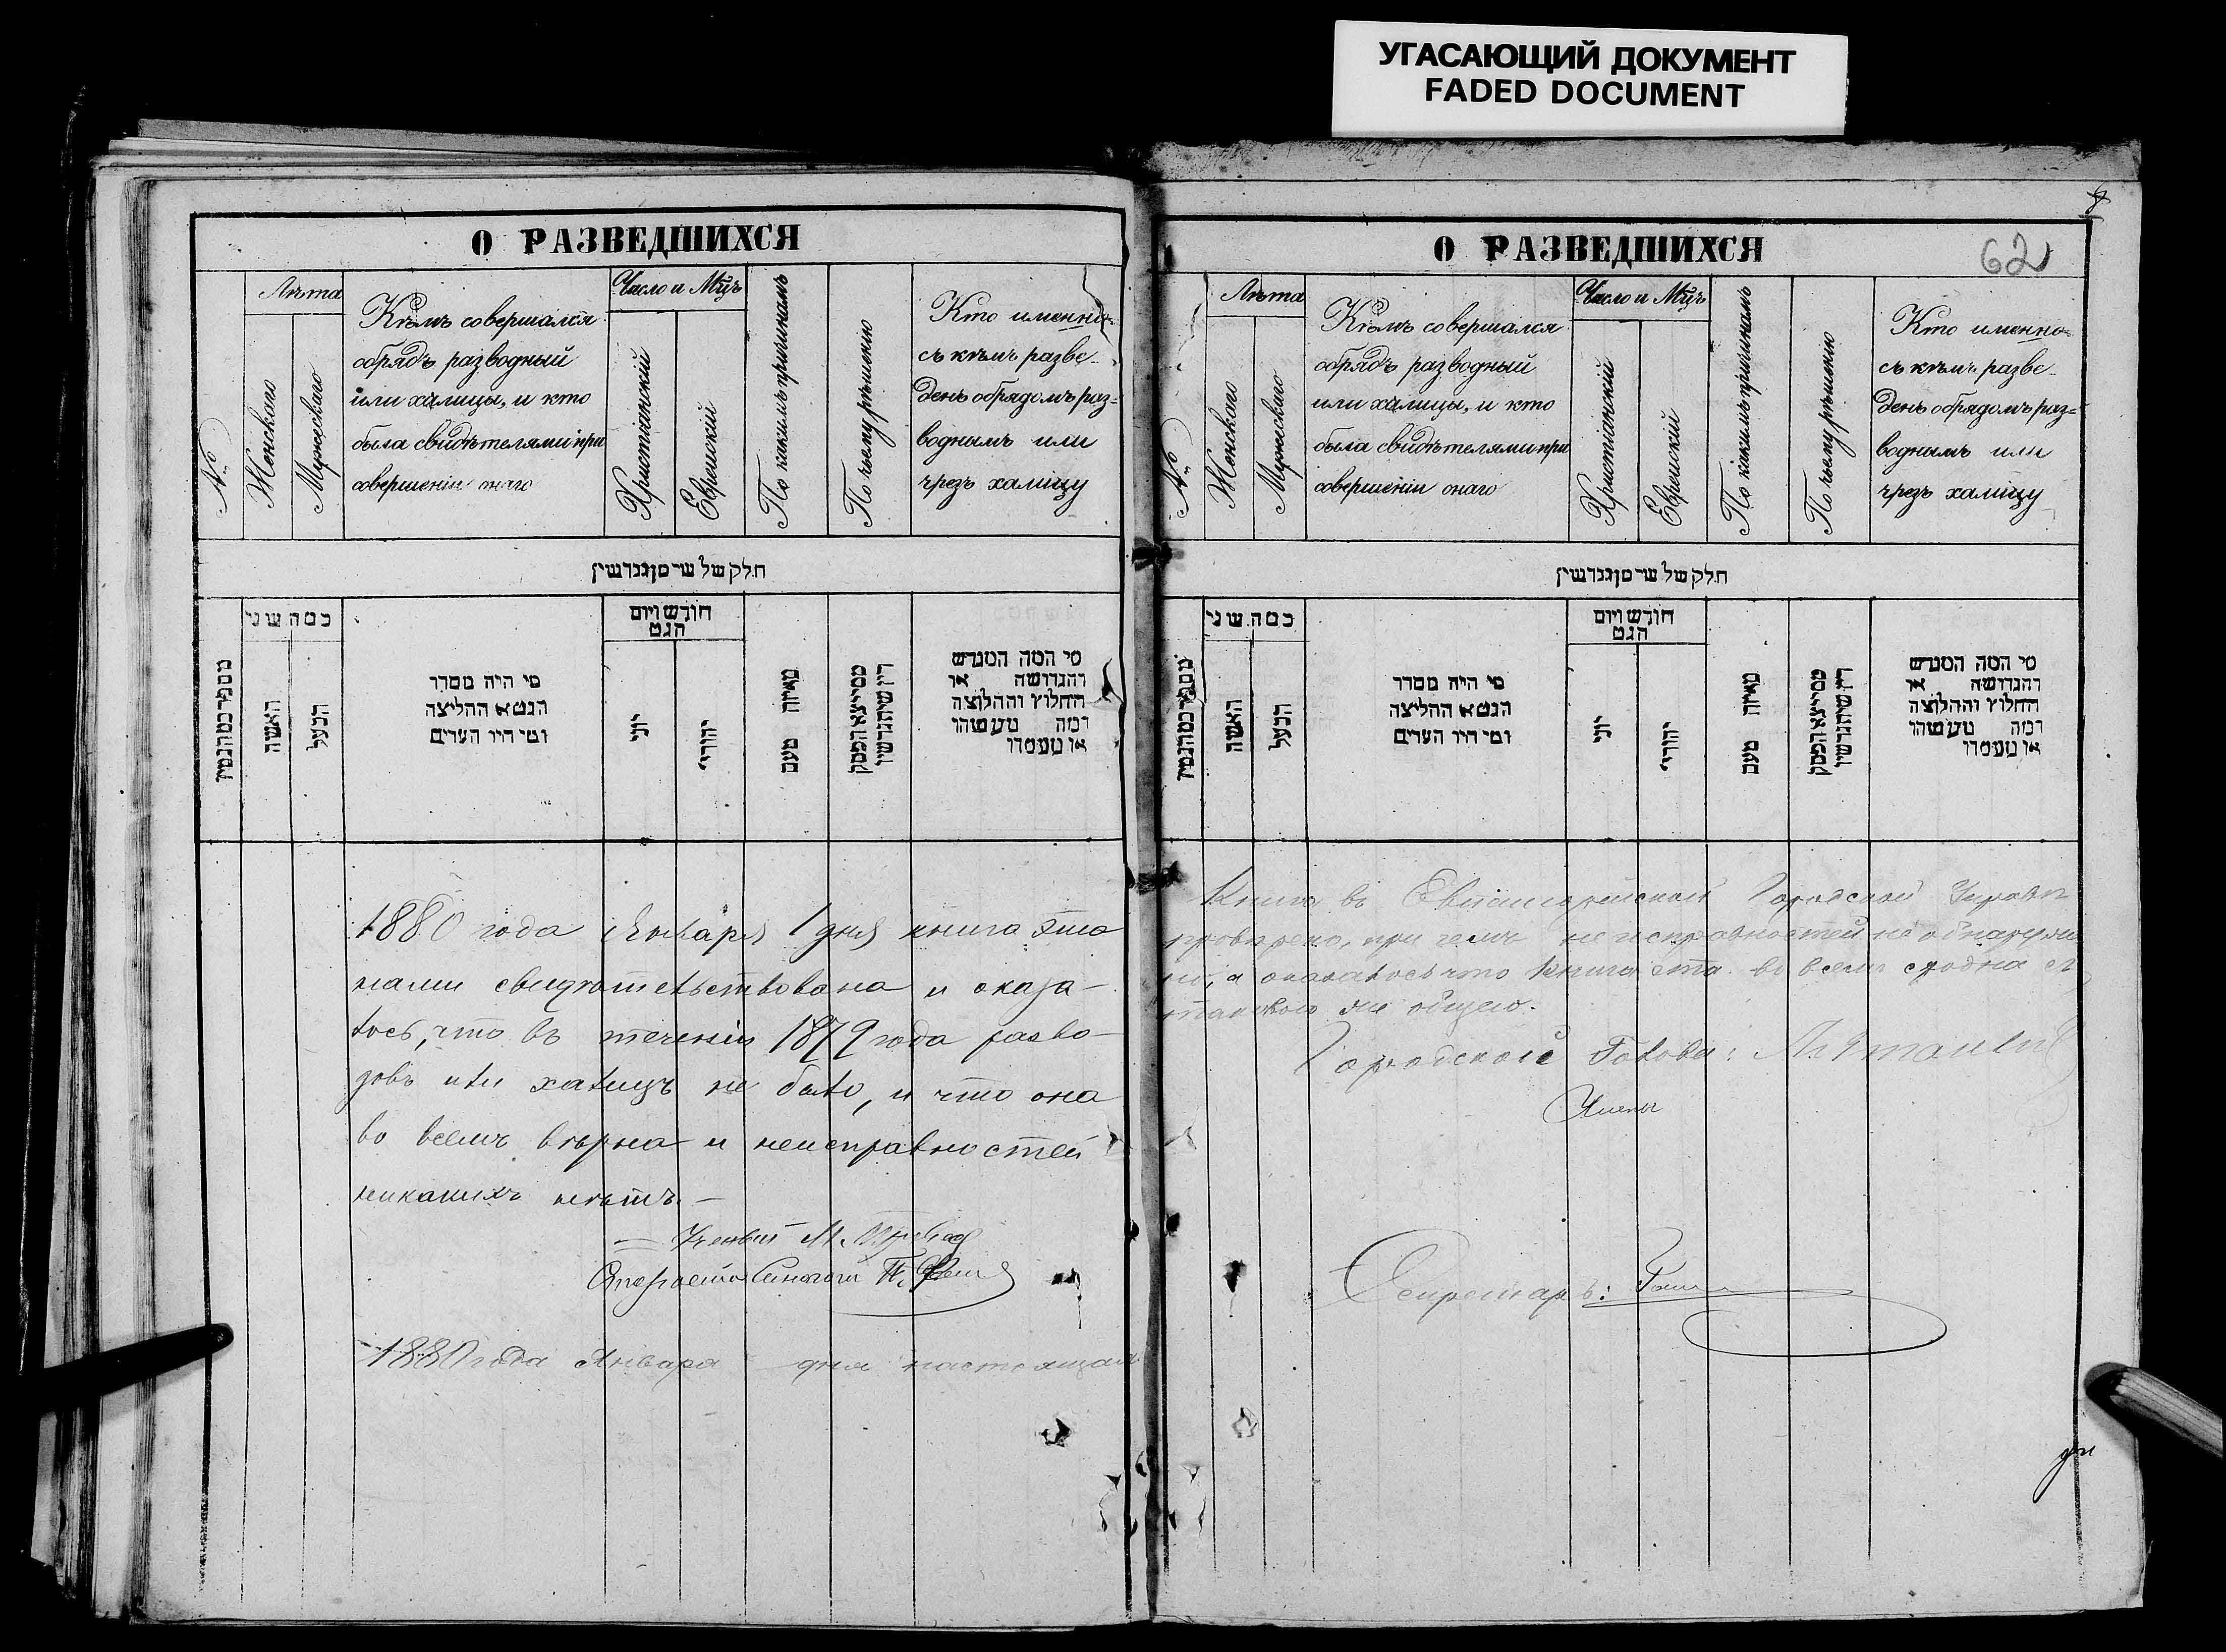 УГАСАЮЩИЙ ДОКУМЕНТ
FADED DOCUMENT
О РАЗВЕДШИХСЯ
№
Лѣта
Женскаго
Мужескаго
Кѣмъ совершался
обрядъ разводный
или халицы, и кто
была свидѣтелями при
совершеніи онаго
Число и Мѣць
Христіанскій
Еврейскій
По какимъ причинамъ
По чьему рѣшенію
Кто именно
съ кѣмъ разве-
денъ обрядомъ раз=
воднымъ или
чрезъ халицу
חלק של
כמה שני
האשה
הבעל
מי היה מסדר
הגט או החליצה
ומי היו העדים
חודש ויום
הגט
יוני
יהודי
מאיזה טעם
מי המה המגרש
והגרושה או
החלוץ והחלוצה
1880 года Января 1 дня книга эта
нами свидѣтельствована и оказа-
лось, что въ теченіи 1879 года разво-
довъ или халицъ не было, и что она
во всемъ вѣрна и неисправностей
никакихъ нѣтъ.—
Ученый М.
Староста Синагоги
1880 года Января дня настоящая
8
62
О РАЗВЕДШИХСЯ
№
Лѣта
Женскаго
Мужескаго
Кѣмъ совершался
обрядъ разводный
или халицы, и кто
была свидѣтелями при
совершеніи онаго
Число и Мѣць
Христіанскій
Еврейскій
По какимъ причинамъ
По чьему рѣшенію
Кто именно
съ кѣмъ разве-
денъ обрядомъ раз=
воднымъ или
чрезъ халицу
חלק של
כמה שני
האשה
הבעל
מי היה מסדר
הגט או החליצה
ומי היו העדים
חודש ויום
הגט
יוני
יהודי
מאיזה טעם
מי המה המגרש
והגרושה או
החלוץ והחלוצה
Книга въ Евпаторійской Городской Управѣ
провѣрена, при чемъ неисправностей не обнаруже
но, а оказалось что книга эта во всемъ сходна съ
таковою же общею.
Городской Голова:
Члены
Секретарь: